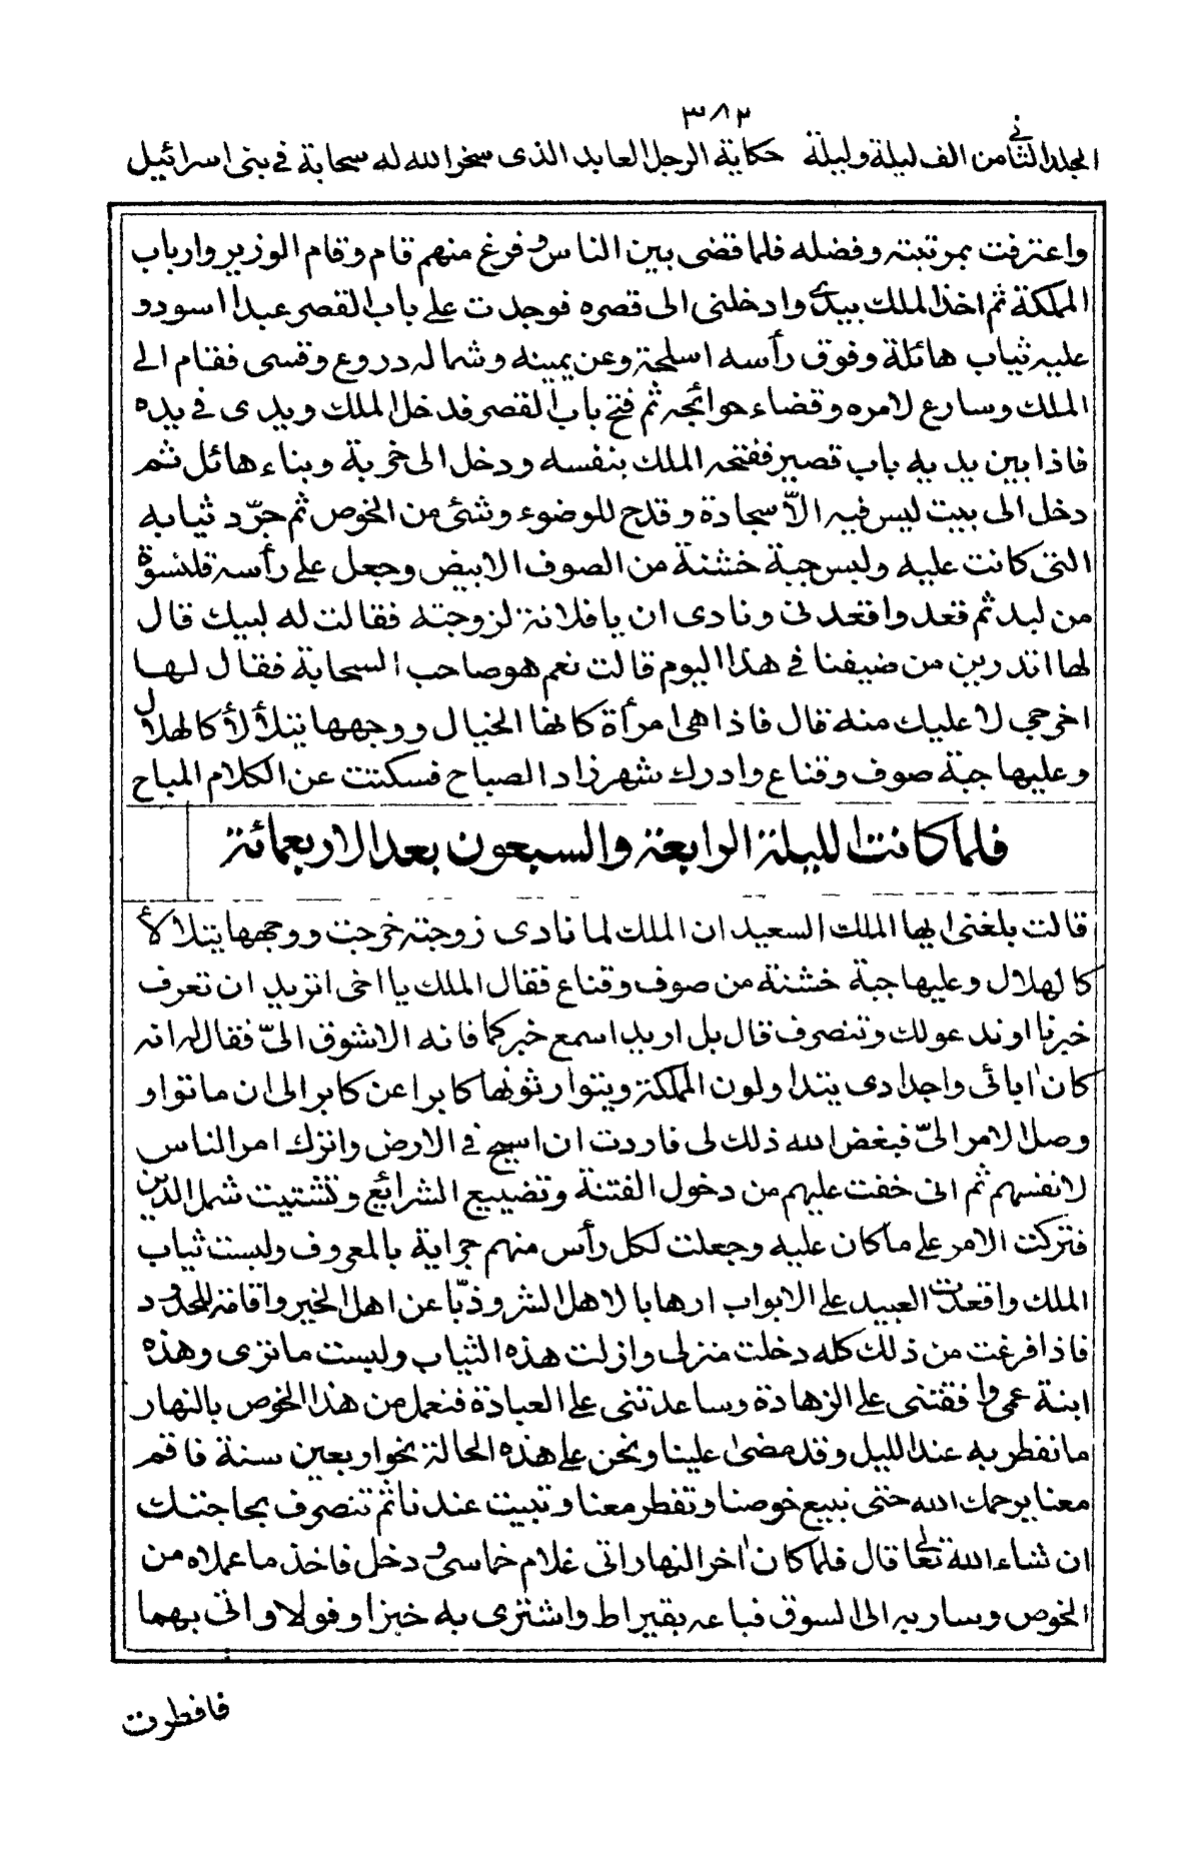 ٣٨٢
المجلد الثانی من الف ليلة وليلة حكاية الرجل العابد الذى سخر الله له سحابة فى بنى اسرائيل
واعترفت بمرتبته وفضله فلما قضى بين الناس وفرغ منهم قام وقام الوزير وارباب
المملكة ثم اخذ الملك بيدى وادخلنى الى قصره فوجدت على باب القصر عبدا اسود و
عليه ثياب هائلة وفوق رأسه اسلحة وعن يمينه وشماله دروع وقسى فقام الى
الملك وسارع لامره وقضاء حوائجه ثم فتح باب القصر فدخل الملك ويدى فى يده
فاذا بين يديه باب قصير ففتحه الملك بنفسه ودخل الى خربة وبناء هائل ثم
دخل الى بيت ليس فيه الّا سجادة وقدح للوضوء وشئ من الخوص ثم جرّد ثيابه
التى كانت عليه ولبس جبة خشنة من الصوف الابيض وجعل على رأسه قلنسوة
من لبد ثم قعد واقعدنى ونادى ان يا فلانة لزوجته فقالت له لبيك قال
لها اتدرين من ضيفنا فى هذا اليوم قالت نعم هو صاحب السحابة فقال لها
اخرجى لا عليك منه قال فاذا هى امرأة كانها الخيال ووجهها يتلألأ كالهلال
وعليها جبة صوف وقناع وادرك شهرزاد الصباح فسكتت عن الكلام المباح
فلما كانت الليلة الرابعة والسبعون بعد الاربعمائة
قالت بلغنى ايها الملك السعيد ان الملك لما نادى زوجته خرجت ووجهها يتلالأ
كالهلال وعليها جبة خشنة من صوف وقناع فقال الملك يا اخى اتريد ان تعرف
خبرنا او ندعو لك وتنصرف قال بل اريد اسمع خبركما فانه الاشوق الىّ فقال له انه
كان ابائى واجدادى يتداولون المملكة ويتوارثونها كابرا عن كابر الى ان ماتوا و
وصل الامر الىّ فبغض الله ذلك لى فاردت ان اسيح فى الارض واترك امر الناس
لانفسهم ثم انى خفت عليهم من دخول الفتنة وتضييع الشرائع وتشتيت شمل الدين
فتركت الامر على ما كان عليه وجعلت لكل رأس منهم جراية بالمعروف ولبست ثياب
الملك واقعدت العبيد على الابواب ارهابا لاهل الشر وذبّا عن اهل الخير واقامة للحدود
فاذا فرغت من ذلك كله دخلت منزلى وازلت هذه الثياب ولبست ما ترى وهذه
ابنة عمى وافقتنى على الزهادة وساعدتنى على العبادة فنعمل من هذا الخوص بالنهار
ما نفطر به عند الليل وقد مضى علينا ونحن على هذه الحالة نحو اربعين سنة فاقم
معنا يرحمك الله حتى نبيع خوصنا وتفطر معنا وتبيت عندنا ثم تنصرف بحاجتك
ان شاء الله تعا قال فلما كان اخر النهار اتى غلام خماسى ودخل فاخذ ما عملاه من
الخوص وسار به الى السوق فباعه بقيراط واشترى به خبزا وفولا واتى بهما
فافطرت